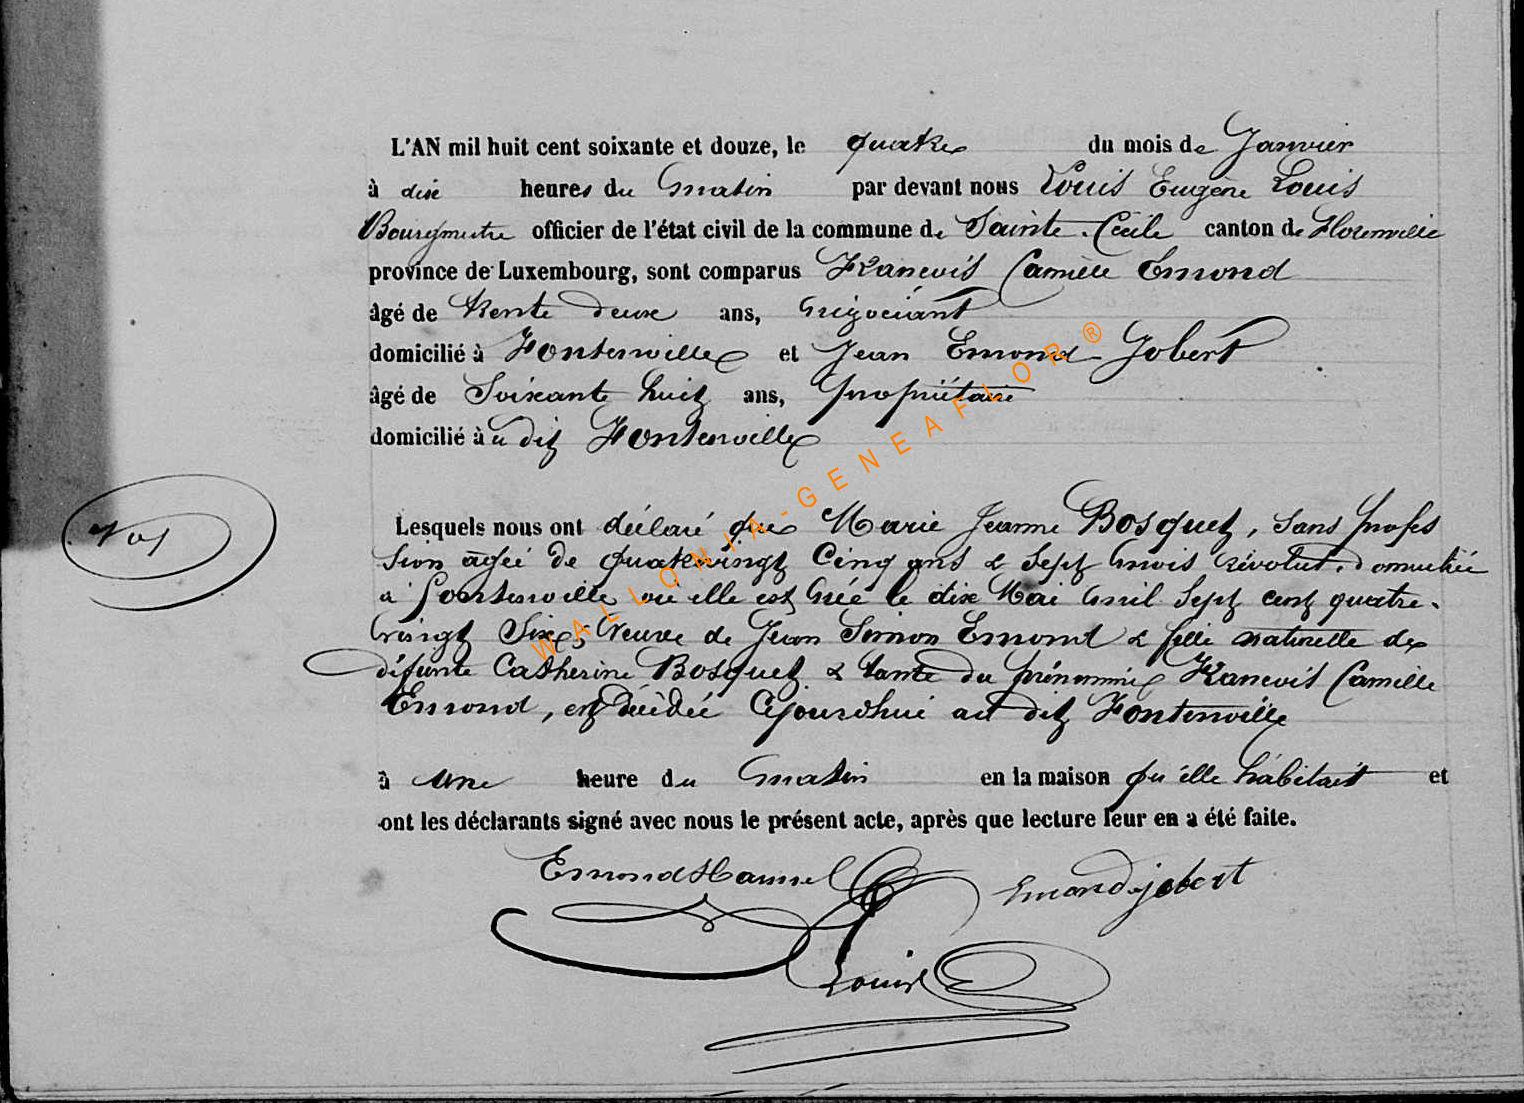 L'AN mil huit cent soixante et douze, le quatre du mois de Janvier
à dix heures du matin par devant nous Louis Eugène Louis
Bourgmestre officier de l'état civil de la commune de Sainte-Cécile canton de Florenville
province de Luxembourg, sont comparus François Camille Emond
âgé de trente deux ans, négociant
domicilié à Fontenoille et Jean Emond Jobert
âgé de Soixante huit ans, propriétaire
domicilié à u dit Fontenoille
N° 1
Lesquels nous ont déclaré que Marie Jeanne Bosquet, sans profes
sion agée de quatrevingt cinq ans & sept mois révolut, domiciliée
à Fontenoille où elle est née le dix Mai mil sept cent quatre-
vingt Six, veuve de Jean Simon Emond & fille naturelle de
défunte Catherine Bosquet & tante du prénommé François Camille
Emond, est décédée cejourd'hui au dit Fontenoille
à une heure du matin en la maison qu'elle habitait et
ont les déclarants signé avec nous le présent acte, après que lecture leur en a été faite.
Emond Emond jobert
Louis
WALLONIA-GENEAFLOR®